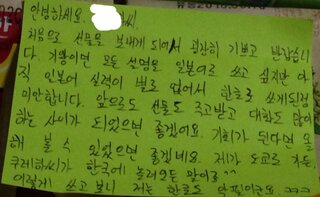 안녕하세요. 씨.
처음으로 선물을 보내게 되어서 굉장히 기쁘고 반갑습니
다. 기왕이면 모든 설명을 일본어로 쓰고 싶지만 아
직 일본어 실력이 별로 없어서 한국어로 쓰게된점
미안합니다. 앞으로도 선물도 주고받고 대화도 많이
하는 사이가 되었으면 좋겠어요. 기회가 된다면
해 볼 수 있었으면 좋겠네요. 제가 도쿄로 가든,
쿠레하씨가 한국에 놀러오든 말이죠^^
이렇게 쓰고 보니 저는 한글도 악필이군요 ㅋㅋㅋ